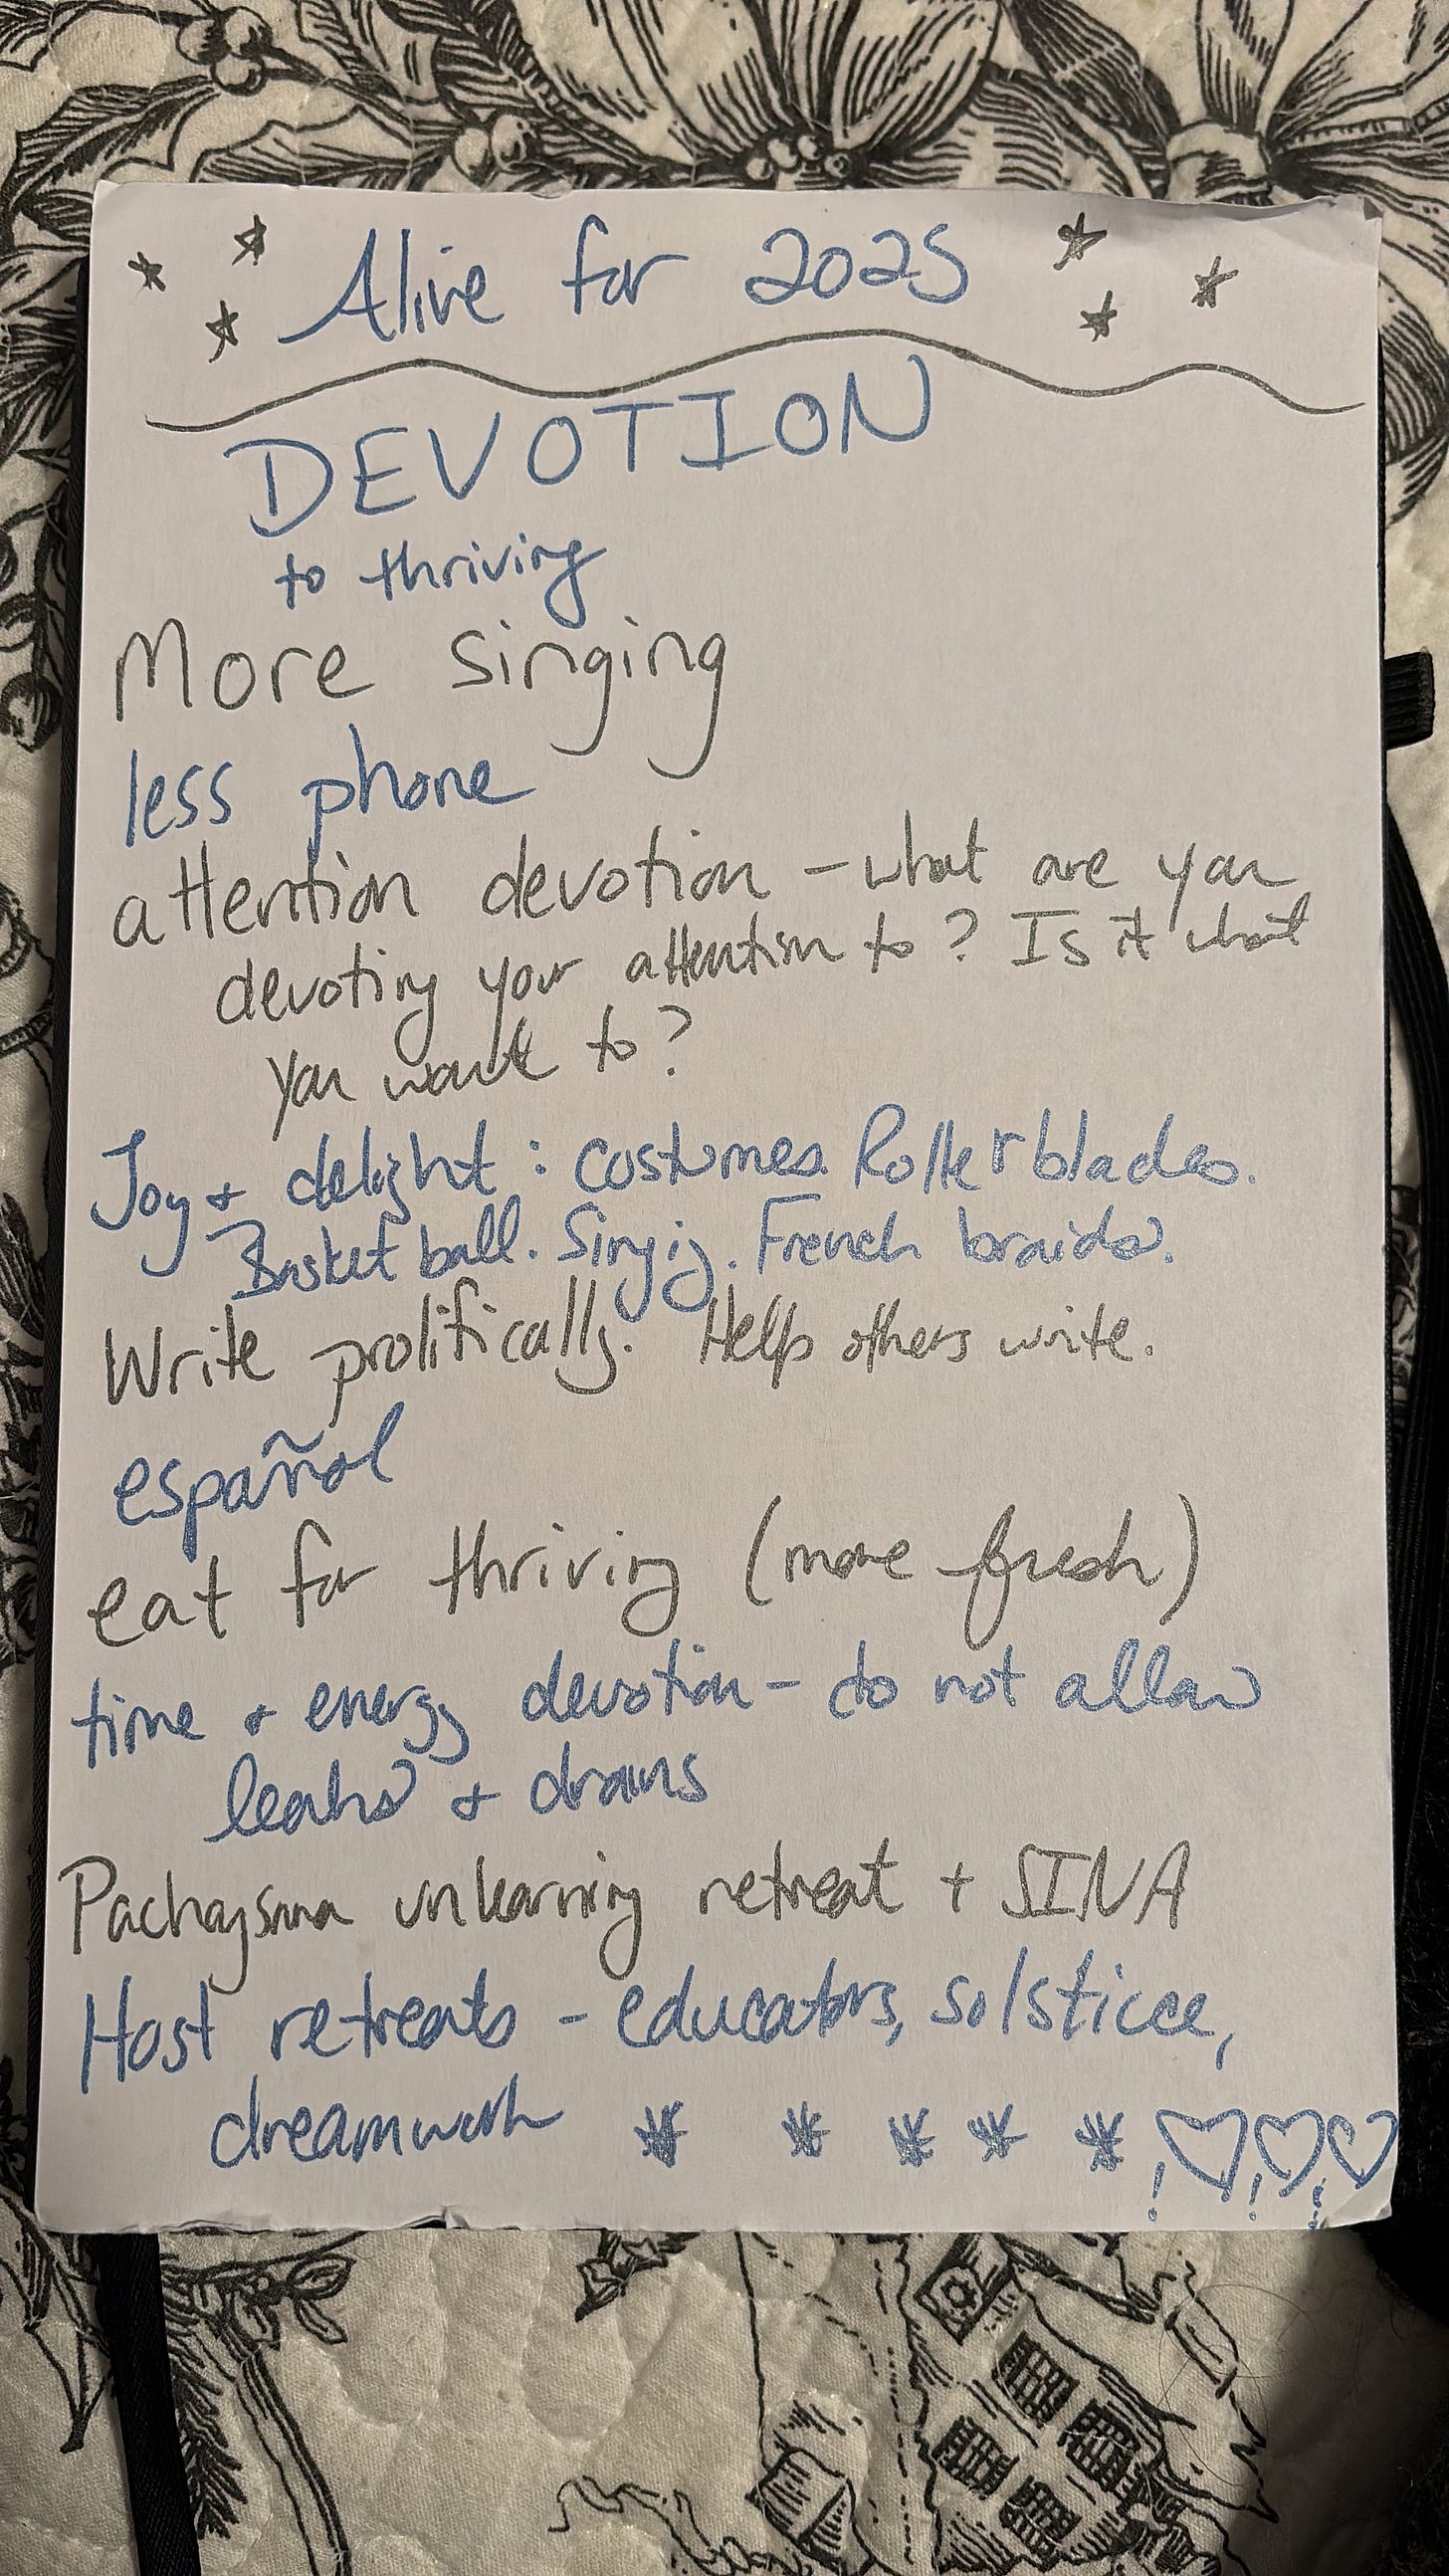 Alive for 2025
DEVOTION
to thriving
More singing
less phone
attention devotion - what are you
devoting your attention to? Is it what
you want to?
Joy + delight: costumes. Rollerblades.
Basketball. Singig. French braids.
Write prolifically. Help others write.
español
eat for thriving (more fresh)
time + energy devotion - do not allow
leaks + drains
unlearning retreat + SINA
Host retreats - educators, solsticee,
dreamwork